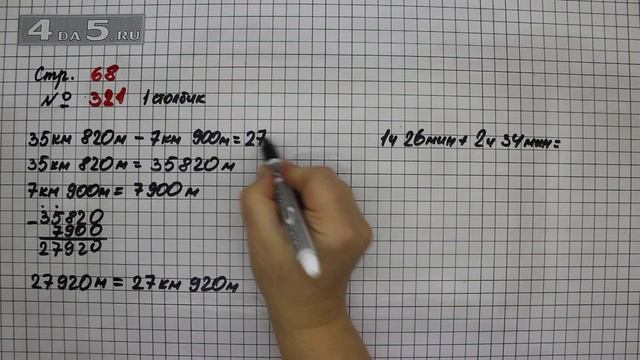 4 DA 5.RU
Стр. 68
№ 321 1 столбик
35км 820м - 7км 900м = 27
35км 820м = 35820м
7км 900м = 7900м
- 35820
7900
27920
27920м = 27км 920м
1ч 26мин + 2ч 34мин =